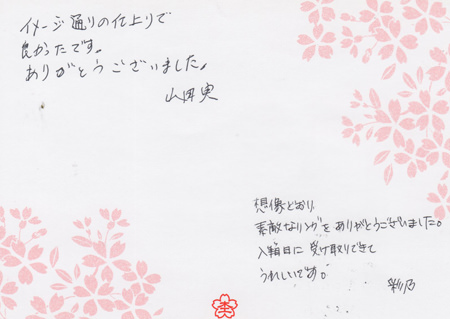 イメージ通りの仕上りで
良かったです。
ありがとうございました。
山田 実
想像どおり
素敵なリングを ありがとうございました。
入籍日に 受け取りできて
うれしいです。
彩乃